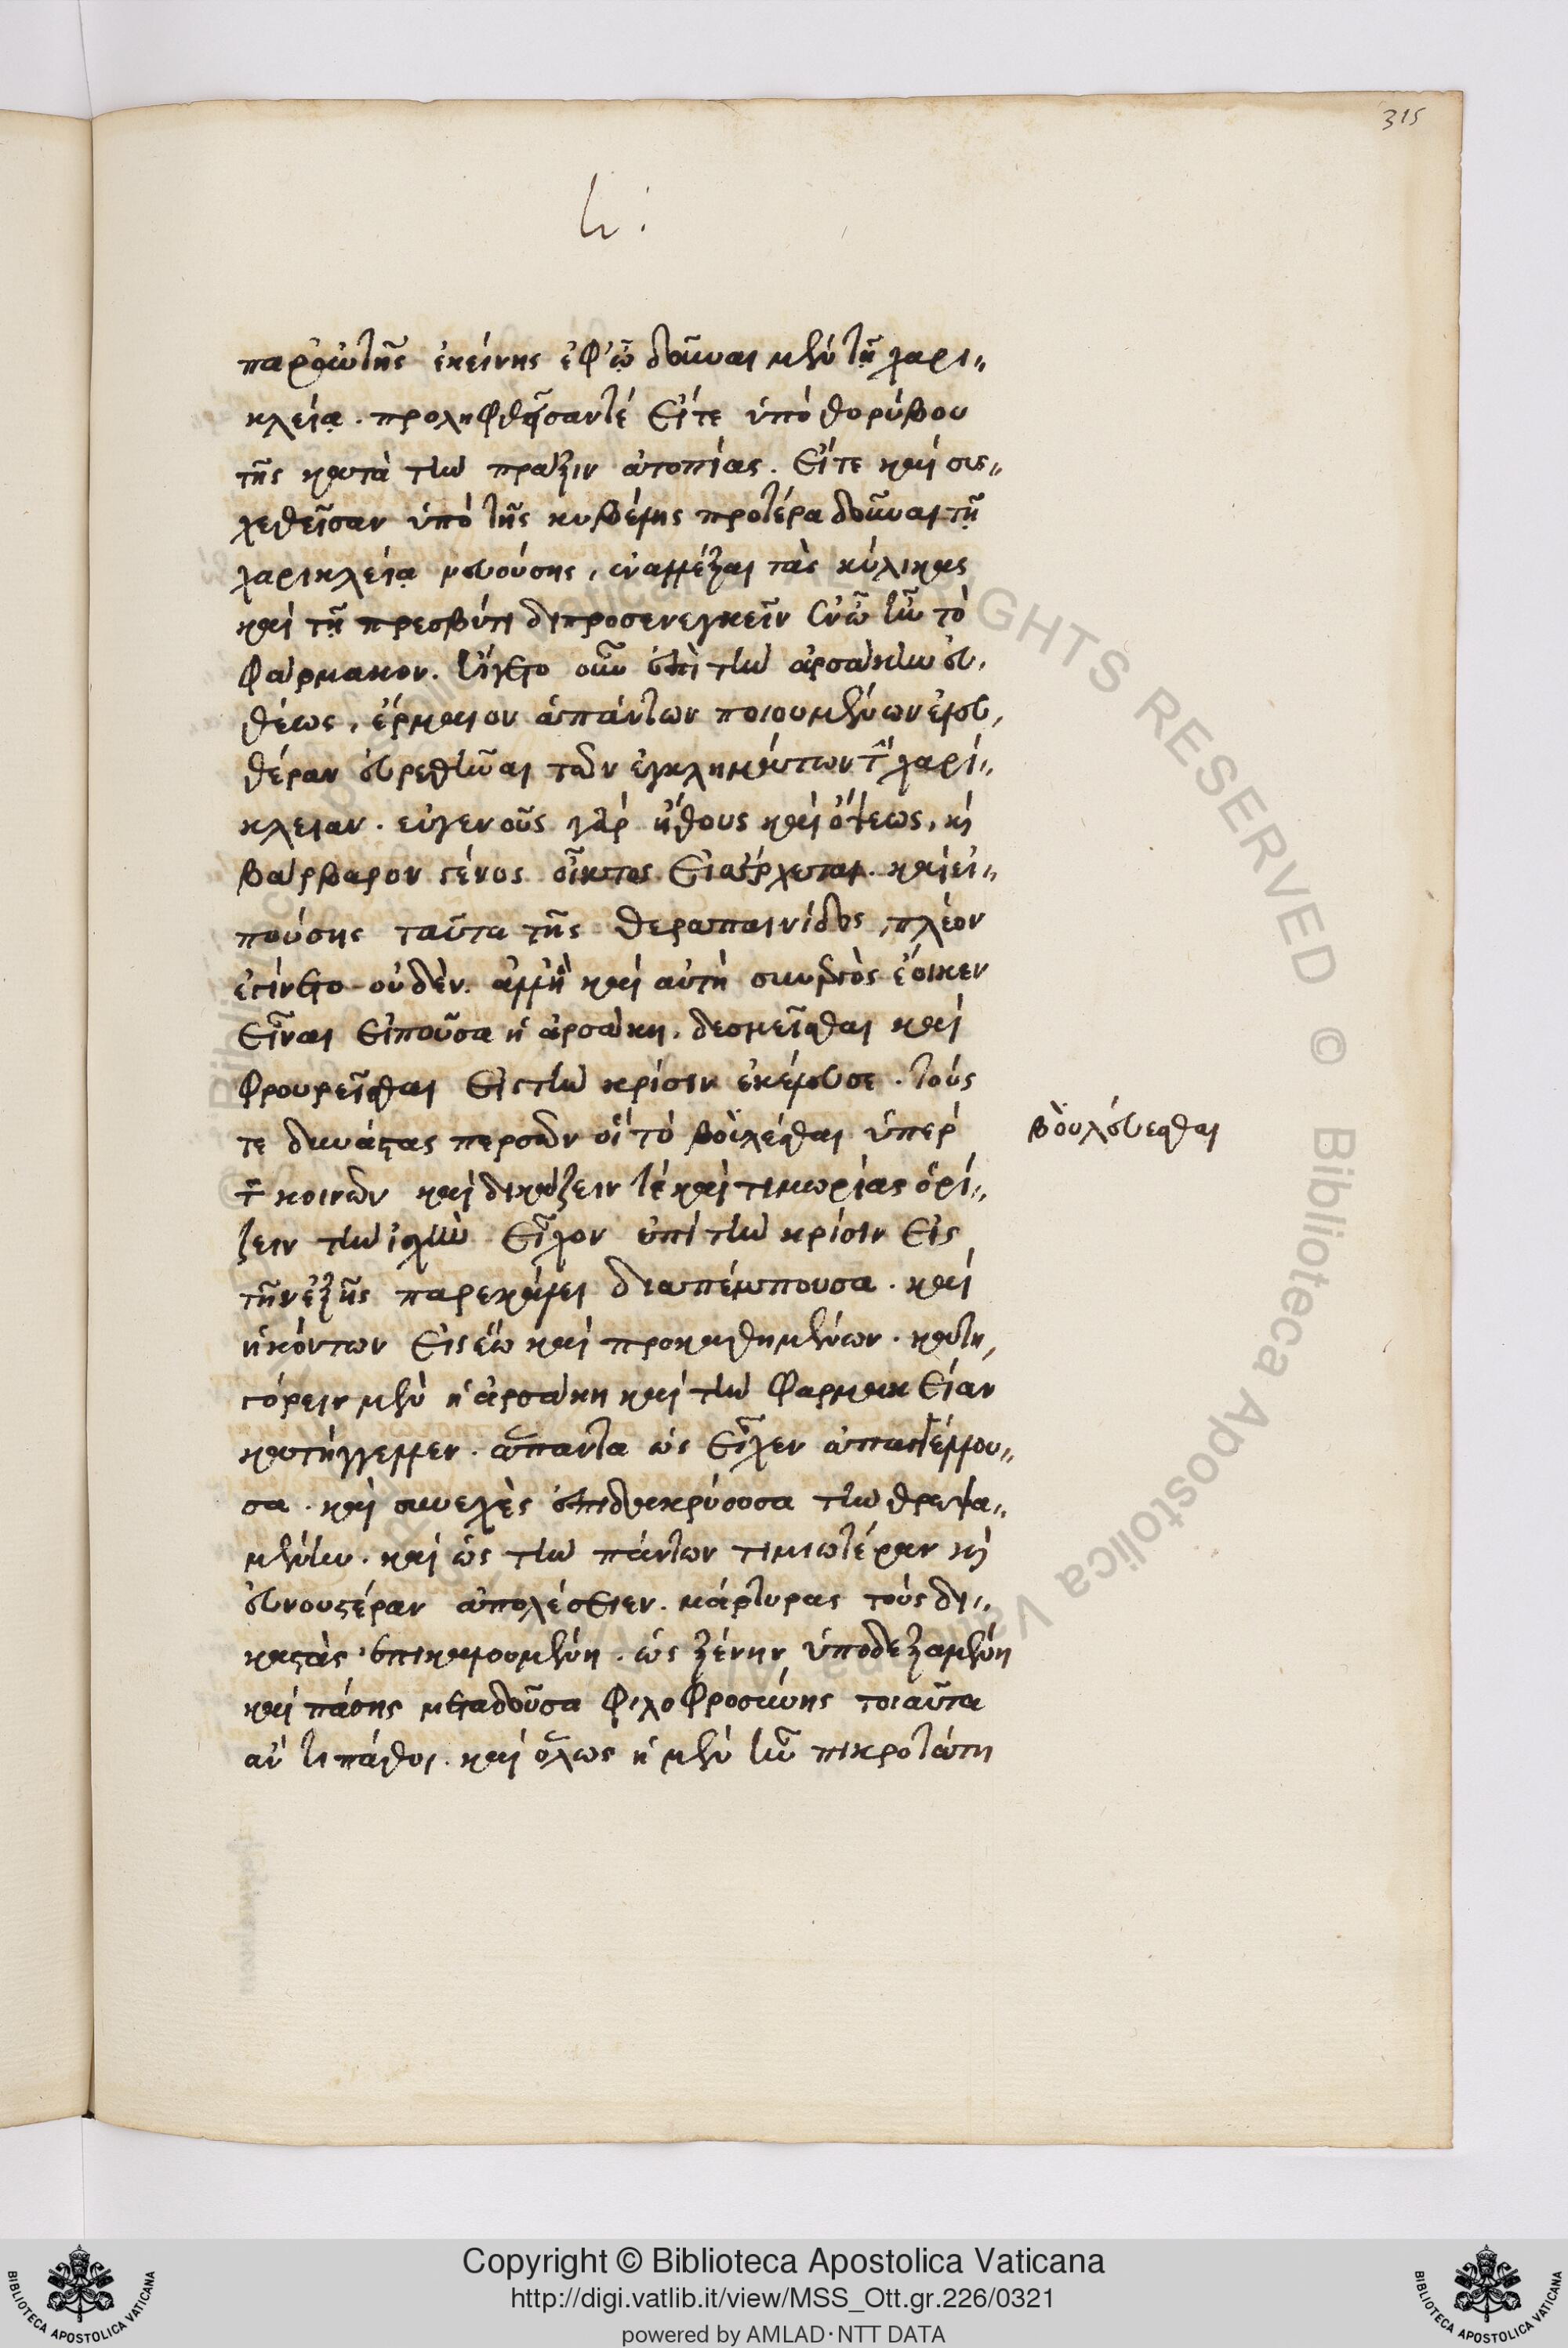 315
παρ' αὐτῆς ἐκείνης ἐφ' ᾧ δοῦναι μὲν τῇ χαρι-
κλείᾳ. προληφθεῖσαν τέ εἴτε ὑπὸ θορύβου
τῆς κατὰ τὴν πρᾶξιν ἀτοπίας. εἴτε καὶ συ-
χεθεῖσαν ὑπὸ τῆς κυβέλης προτέρα δοῦναι τῇ
χαρικλείᾳ νευούσης, ἐναλλάξαι τὰς κύλικας
καὶ τῇ πρεσβύτιδι προσενεγκεῖν ἐν ᾧ ἦν τὸ
φάρμακον. ἤγετο οὖν ἐπὶ τὴν ἀρσάκην εὐ-
θέως, ἕρμαιον ἁπάντων ποιουμένων ἐλευ-
θέραν εὑρεθῆναι τῶν ἐγκλημάτων τὴν χαρί-
κλειαν. εὐγενοῦς γὰρ ἤθους καὶ ὄψεως, καὶ
βάρβαρον γένος οἶκτος εἰσέρχεται. καὶ εἰ-
πούσης ταῦτα τῆς θεραπαινίδος, πλέον
ἐγίνετο οὐδὲν. ἀλλ' ἢ καὶ αὐτὴ συνεργὸς ἔοικεν
εἶναι εἰποῦσα ἡ ἀρσάκη. δεσμεῖσθαι καὶ
φρουρεῖσθαι εἰς τὴν κρίσιν ἐκέλευσε. τούς
τε δυνάστας περσῶν οἳ τὸ βουλέσθαι ὑπὲρ
βουλεύεσθαι
τῶν κοινῶν καὶ δικάζειν τέ καὶ τιμωρίας ὁρί-
ζειν τὴν ἰσχὺν εἶχον ἐπὶ τὴν κρίσιν εἰς
τὴν ἑξῆς παρεκάλει διαπέμπουσα. καὶ
ἡκόντων εἰς ἕω καὶ προκαθημένων. κατη-
γόρειν μὲν ἡ ἀρσάκη καὶ τὴν φαρμακείαν
κατήγγελλεν. ἅπαντα ὡς εἶχεν ἀπαγγέλλου-
σα. καὶ συνεχὲς ἐπιδακρύουσα τὴν θρεψα-
μένην. καὶ ὡς τὴν πάντων τιμιωτέραν καὶ
εὐνουστέραν ἀπολέσειεν. μάρτυρας τοὺς δι-
καστὰς ἐπικαλουμένη. ὡς ξένην ὑποδεξαμένη
καὶ πάσης μεταδοῦσα φιλοφροσύνης τοιαῦτα
ἀντιπάθοι. καὶ ὅλως ἡ μὲν ἦν πικροτάτη
Copyright © Biblioteca Apostolica Vaticana
http://digi.vatlib.it/view/MSS_Ott.gr.226/0321
powered by AMLAD·NTT DATA